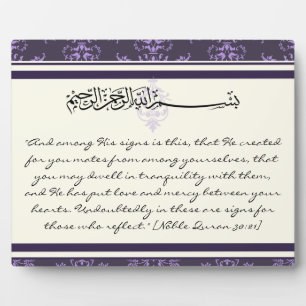 بسم الله الرحمن الرحيم
"And among His signs is this, that He created
for you mates from among yourselves, that
you may dwell in tranquility with them,
and He has put love and mercy between your
hearts. Undoubtedly in these are signs for
those who reflect." [Noble Quran 30:21]